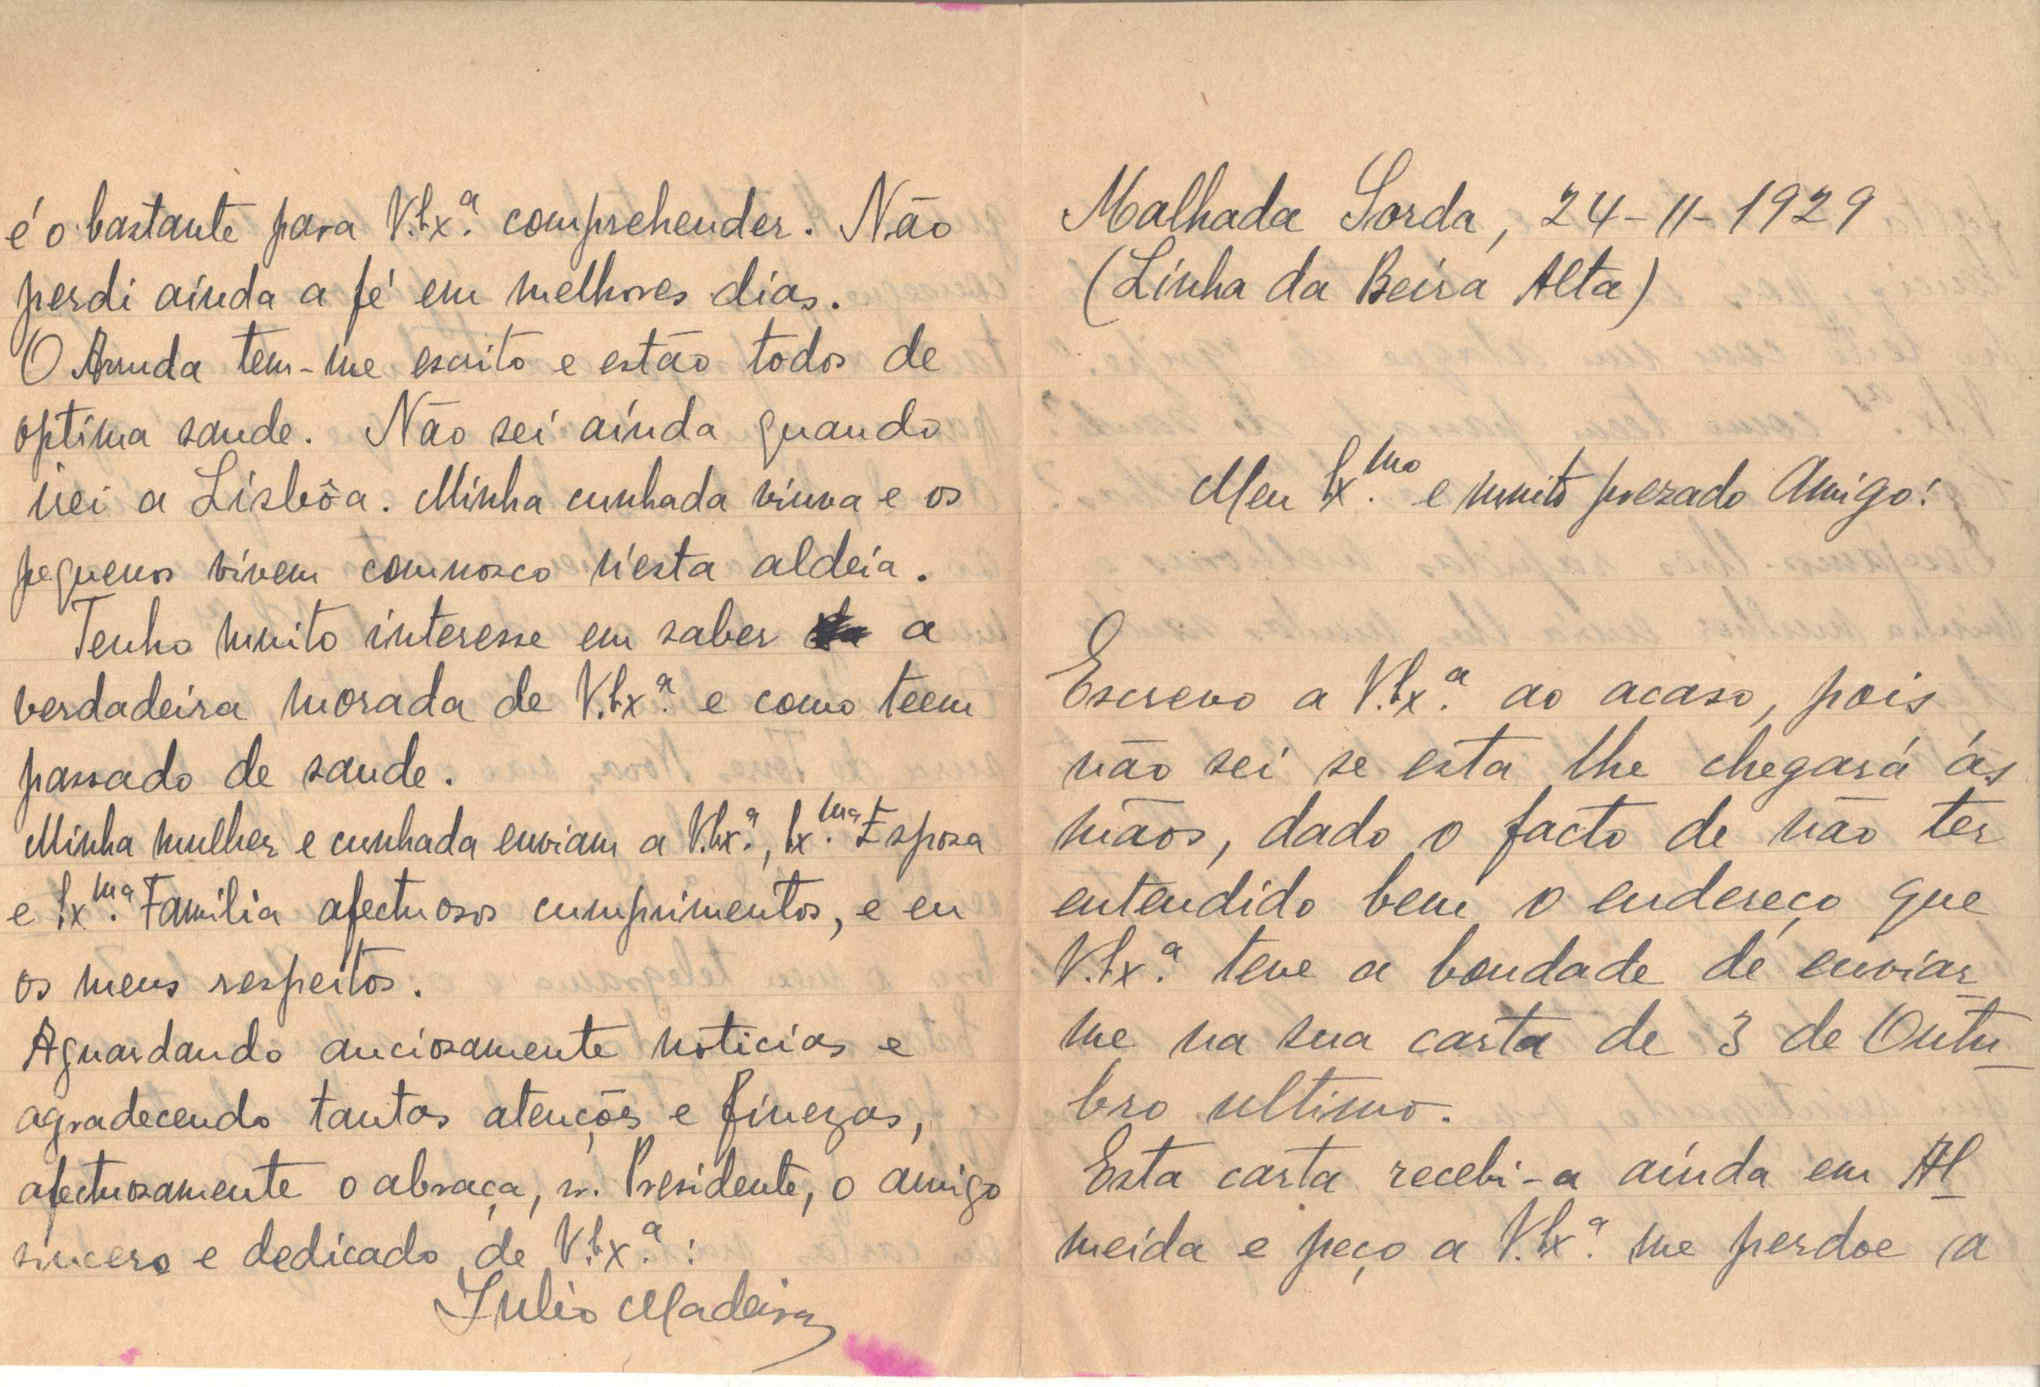 Malhada Sorda, 24-11-1929
(Linha da Beira Alta)
Meu Ex.mo e muito prezado Amigo!
Escrevo a V.Ex.ª ao acaso, pois
não sei se esta lhe chegará ás
mãos, dado o facto de não ter
entendido bem o endereço que
V.Ex.ª teve a bondade de enviar
me na sua carta de 3 de Outu
bro ultimo.
Esta carta recebi-a ainda em Al
meida e peço a V.Ex.ª me perdoe a
é o bastante para V.Ex.ª comprehender. Não
perdi ainda a fé em melhores dias.
O Arruda tem-me escrito e estão todos de
optima saude. Não sei ainda quando
irei a Lisbôa. Minha cunhada viuva e os
pequenos vivem comnosco n'esta aldeia.
Tenho muito interesse em saber a
verdadeira morada de V.Ex.ª e como teem
passado de saude.
Minha mulher e cunhada enviam a V.Ex.ª, Ex.ma Esposa
e Ex.ma Familia afectuosos cumprimentos, e eu
os meus respeitos.
Aguardando anciosamente noticias e
agradecendo tantas atenções e finezas,
afectuosamente o abraça, sr. Presidente, o amigo
sincero e dedicado de V.Ex.ª:
Julio Madeira